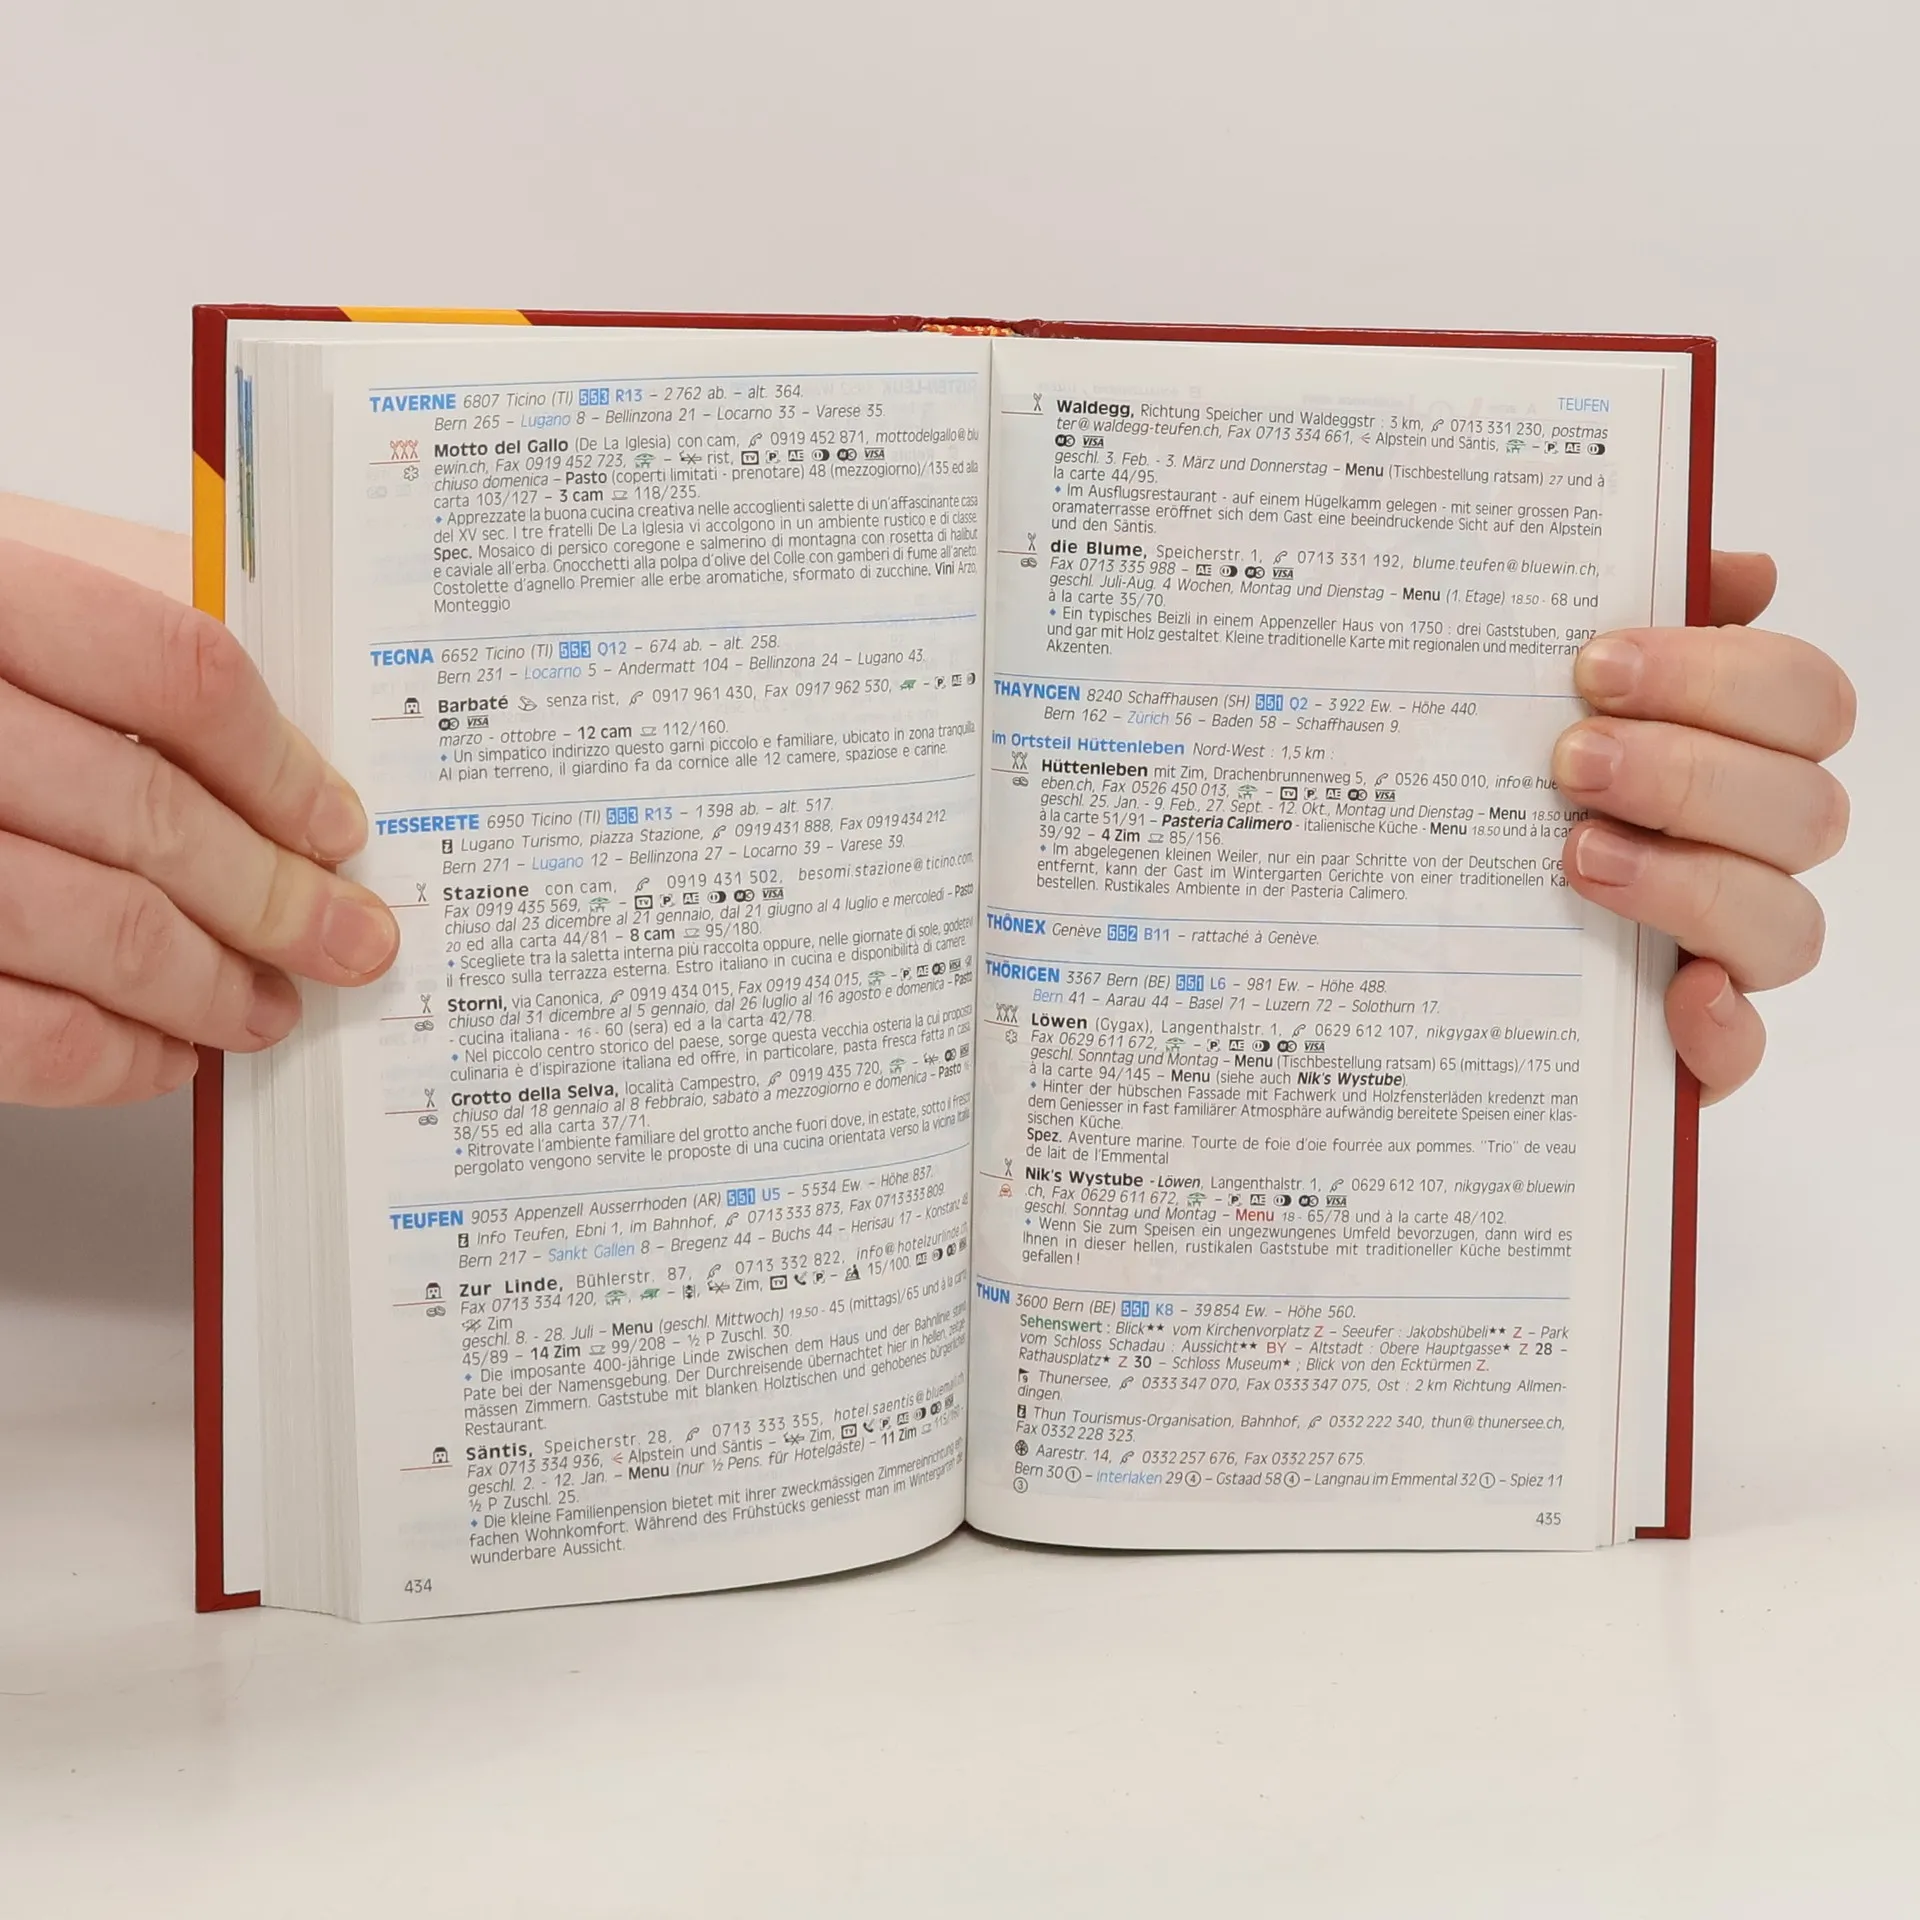 TAVERNE 6807 Ticino (TI) 553 R13 – 2762 ab. – alt. 364.
Bern 265 – Lugano 8 – Bellinzona 21 – Locarno 33 – Varese 35.
Motto del Gallo (De La Iglesia) con cam, 0919 452 871, mottodelgallo@blu
ewin.ch, Fax 0919 452 723, – rist, TV P AE VISA
chiuso domenica – Pasto (coperti limitati - prenotare) 48 (mezzogiorno)/135 ed alla
carta 103/127 – 3 cam 118/235.
Apprezzate la buona cucina creativa nelle accoglienti salette di un'affascinante casa
del XV sec. I tre fratelli De La Iglesia vi accolgono in un ambiente rustico e di classe.
Spec. Mosaico di persico coregone e salmerino di montagna con rosetta di halibut
e caviale all'erba. Gnocchetti alla polpa d'olive del Colle con gamberi di fume all'aneto.
Costolette d'agnello Premier alle erbe aromatiche, sformato di zucchine. Vini Arzo,
Monteggio
TEGNA 6652 Ticino (TI) 553 Q12 – 674 ab. – alt. 258.
Bern 231 – Locarno 5 – Andermatt 104 – Bellinzona 24 – Lugano 43.
Barbaté senza rist, 0917 961 430, Fax 0917 962 530, – P AE
VISA
marzo - ottobre – 12 cam 112/160.
Un simpatico indirizzo questo garni piccolo e familiare, ubicato in zona tranquilla.
Al pian terreno, il giardino fa da cornice alle 12 camere, spaziose e carine.
TESSERETE 6950 Ticino (TI) 553 R13 – 1398 ab. – alt. 517.
Lugano Turismo, piazza Stazione, 0919 431 888, Fax 0919 434 212
Bern 271 – Lugano 12 – Bellinzona 27 – Locarno 39 – Varese 39.
Stazione con cam, 0919 431 502, besomi.stazione@ticino.com,
Fax 0919 435 569, – TV P AE VISA
chiuso dal 23 dicembre al 21 gennaio, dal 21 giugno al 4 luglio e mercoledì – Pasto
20 ed alla carta 44/81 – 8 cam 95/180.
Scegliete tra la saletta interna più raccolta oppure, nelle giornate di sole, godetevi
il fresco sulla terrazza esterna. Estro italiano in cucina e disponibilità di camere.
Storni, via Canonica, 0919 434 015, Fax 0919 434 015, – P AE VISA
chiuso dal 31 dicembre al 5 gennaio, dal 26 luglio al 16 agosto e domenica – Pasto
- cucina italiana - 16 - 60 (sera) ed a la carta 42/78.
Nel piccolo centro storico del paese, sorge questa vecchia osteria la cui proposta
culinaria è d'ispirazione italiana ed offre, in particolare, pasta fresca fatta in casa.
Grotto della Selva, località Campestro, 0919 435 720, –
chiuso dal 18 gennaio al 8 febbraio, sabato a mezzogiorno e domenica – Pasto
38/55 ed alla carta 37/71.
Ritrovate l'ambiente familiare del grotto anche fuori dove, in estate, sotto il fresco
pergolato vengono servite le proposte di una cucina orientata verso la vicina Italia.
TEUFEN 9053 Appenzell Ausserrhoden (AR) 551 U5 – 5534 Ew. – Höhe 837.
Info Teufen, Ebni 1, im Bahnhof, 0713 333 873, Fax 0713 333 809.
Bern 217 – Sankt Gallen 8 – Bregenz 44 – Buchs 44 – Herisau 17 – Konstanz
Zur Linde, Bühlerstr. 87, 0713 332 822, info@hotelzurlinde.ch,
Fax 0713 334 120, – Zim, TV P – 15/100. AE
Zim
geschl. 8. - 28. Juli – Menu (geschl. Mittwoch) 19.50 - 45 (mittags)/65 und à la carte
45/89 – 14 Zim 99/208 – ½ P Zuschl. 30.
Die imposante 400-jährige Linde zwischen dem Haus und der Bahnlinie stand
Pate bei der Namensgebung. Der Durchreisende übernachtet hier in hellen, zeitge-
mässen Zimmern. Gaststube mit blanken Holztischen und gehobenes bürgerliches
Restaurant.
Säntis, Speicherstr. 28, 0713 333 355, hotel.saentis@bluemail.ch,
Fax 0713 334 936, Alpstein und Säntis – Zim, TV P AE
geschl. 2. - 12. Jan. – Menu (nur ½ Pens. für Hotelgäste) – 11 Zim 115/160 -
½ P Zuschl. 25.
Die kleine Familienpension bietet mit ihrer zweckmässigen Zimmereinrichtung ein-
fachen Wohnkomfort. Während des Frühstücks geniesst man im Wintergarten die
wunderbare Aussicht.
434
TEUFEN
Waldegg, Richtung Speicher und Waldeggstr : 3 km, 0713 331 230, postmas
ter@waldegg-teufen.ch, Fax 0713 334 661, Alpstein und Säntis, – P AE
VISA
geschl. 3. Feb. - 3. März und Donnerstag – Menu (Tischbestellung ratsam) 27 und à
la carte 44/95.
Im Ausflugsrestaurant - auf einem Hügelkamm gelegen - mit seiner grossen Pan-
oramaterasse eröffnet sich dem Gast eine beeindruckende Sicht auf den Alpstein
und den Säntis.
die Blume, Speicherstr. 1, 0713 331 192, blume.teufen@bluewin.ch,
Fax 0713 335 988 – AE VISA
geschl. Juli-Aug. 4 Wochen, Montag und Dienstag – Menu (1. Etage) 18.50 - 68 und
à la carte 35/70.
Ein typisches Beizli in einem Appenzeller Haus von 1750 : drei Gaststuben, ganz
und gar mit Holz gestaltet. Kleine traditionelle Karte mit regionalen und mediterran
Akzenten.
THAYNGEN 8240 Schaffhausen (SH) 551 Q2 – 3922 Ew. – Höhe 440.
Bern 162 – Zürich 56 – Baden 58 – Schaffhausen 9.
im Ortsteil Hüttenleben Nord-West : 1,5 km :
Hüttenleben mit Zim, Drachenbrunnenweg 5, 0526 450 010, info@hue
eben.ch, Fax 0526 450 013, – TV P AE VISA
geschl. 25. Jan. - 9. Feb., 27. Sept. - 12. Okt., Montag und Dienstag – Menu 18.50 und
à la carte 51/91 – Pasteria Calimero - italienische Küche - Menu 18.50 und à la car
39/92 – 4 Zim 85/156.
Im abgelegenen kleinen Weiler, nur ein paar Schritte von der Deutschen Gre
entfernt, kann der Gast im Wintergarten Gerichte von einer traditionellen Ka
bestellen. Rustikales Ambiente in der Pasteria Calimero.
THÔNEX Genève 552 B11 – rattaché à Genève.
THÖRIGEN 3367 Bern (BE) 551 L6 – 981 Ew. – Höhe 488.
Bern 41 – Aarau 44 – Basel 71 – Luzern 72 – Solothurn 17.
Löwen (Gygax), Langenthalstr. 1, 0629 612 107, nikgygax@bluewin.ch,
Fax 0629 611 672, – P AE VISA
geschl. Sonntag und Montag – Menu (Tischbestellung ratsam) 65 (mittags)/175 und
à la carte 94/145 – Menu (siehe auch Nik's Wystube).
Hinter der hübschen Fassade mit Fachwerk und Holzfensterläden kredenzt man
dem Geniesser in fast familiärer Atmosphäre aufwändig bereitete Speisen einer klas-
sischen Küche.
Spez. Aventure marine. Tourte de foie d'oie fourrée aux pommes. "Trio" de veau
de lait de l'Emmental
Nik's Wystube - Löwen, Langenthalstr. 1, 0629 612 107, nikgygax@bluewin
.ch, Fax 0629 611 672, – P AE VISA
geschl. Sonntag und Montag – Menu 18 - 65/78 und à la carte 48/102.
Wenn Sie zum Speisen ein ungezwungenes Umfeld bevorzugen, dann wird es
Ihnen in dieser hellen, rustikalen Gaststube mit traditioneller Küche bestimmt
gefallen !
THUN 3600 Bern (BE) 551 K8 – 39854 Ew. – Höhe 560.
Sehenswert : Blick★★ vom Kirchenvorplatz Z – Seeufer : Jakobshübeli★★ Z – Park
vom Schloss Schadau : Aussicht★★ BY – Altstadt : Obere Hauptgasse★ Z 28 –
Rathausplatz★ Z 30 – Schloss Museum★ ; Blick von den Ecktürmen Z.
Thunersee, 0333 347 070, Fax 0333 347 075, Ost : 2 km Richtung Allmen-
dingen.
Thun Tourismus-Organisation, Bahnhof, 0332 222 340, thun@thunersee.ch,
Fax 0332 228 323.
Aarestr. 14, 0332 257 676, Fax 0332 257 675.
Bern 30① – Interlaken 29④ – Gstaad 58④ – Langnau im Emmental 32① – Spiez 11
③
435